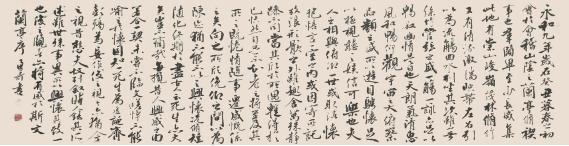 永和九年歲在癸丑暮春之初
會于會稽山陰之蘭亭脩稧
事也羣賢畢至少長咸集
此地有崇山峻領茂林脩竹
又有清流激湍暎帶左右引
以為流觴曲水列坐其次雖無
絲竹管弦之盛一觴一詠亦足以
暢敘幽情是日也天朗氣清惠
風和暢仰觀宇宙之大俯察
品類之盛所以遊目騁懷足
以極視聽之娛信可樂也夫
人之相與俯仰一世或取諸懷
抱悟言一室之內或因寄所託
放浪形骸之外雖趣舍萬殊靜
躁不同當其欣於所遇暫得於
己快然自足不知老之將至及其
所之既惓情隨事遷感慨係
之矣向之所欣俛仰之間以為
陳迹猶不能不以之興懷況脩短
隨化終期於盡古人云死生亦大
矣豈不痛哉每攬昔人興感之由
若合一契未嘗不臨文嗟悼不能
喻之於懷固知一死生為虛誕齊
彭殤為妄作後之視今亦猶今
之視昔悲夫故列敘時人錄其所
述雖世殊事異所以興懷其致一
也後之攬者亦將有感於斯文
蘭亭序